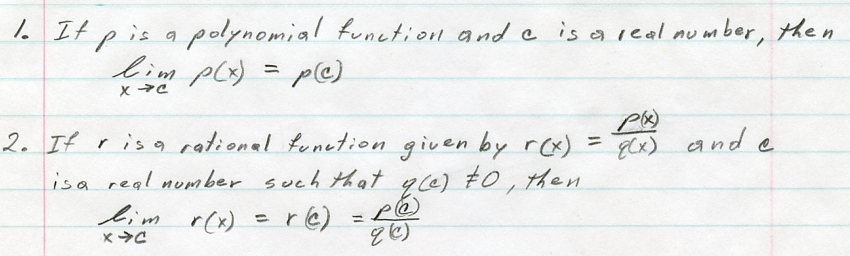 1. If p is a polynomial function and c is a real number, then
lim p(x) = p(c)
x→c
2. If r is a rational function given by r(x) = p(x)/q(x) and c
is a real number such that q(c) ≠ 0, then
lim r(x) = r(c) = p(c)/q(c)
x→c